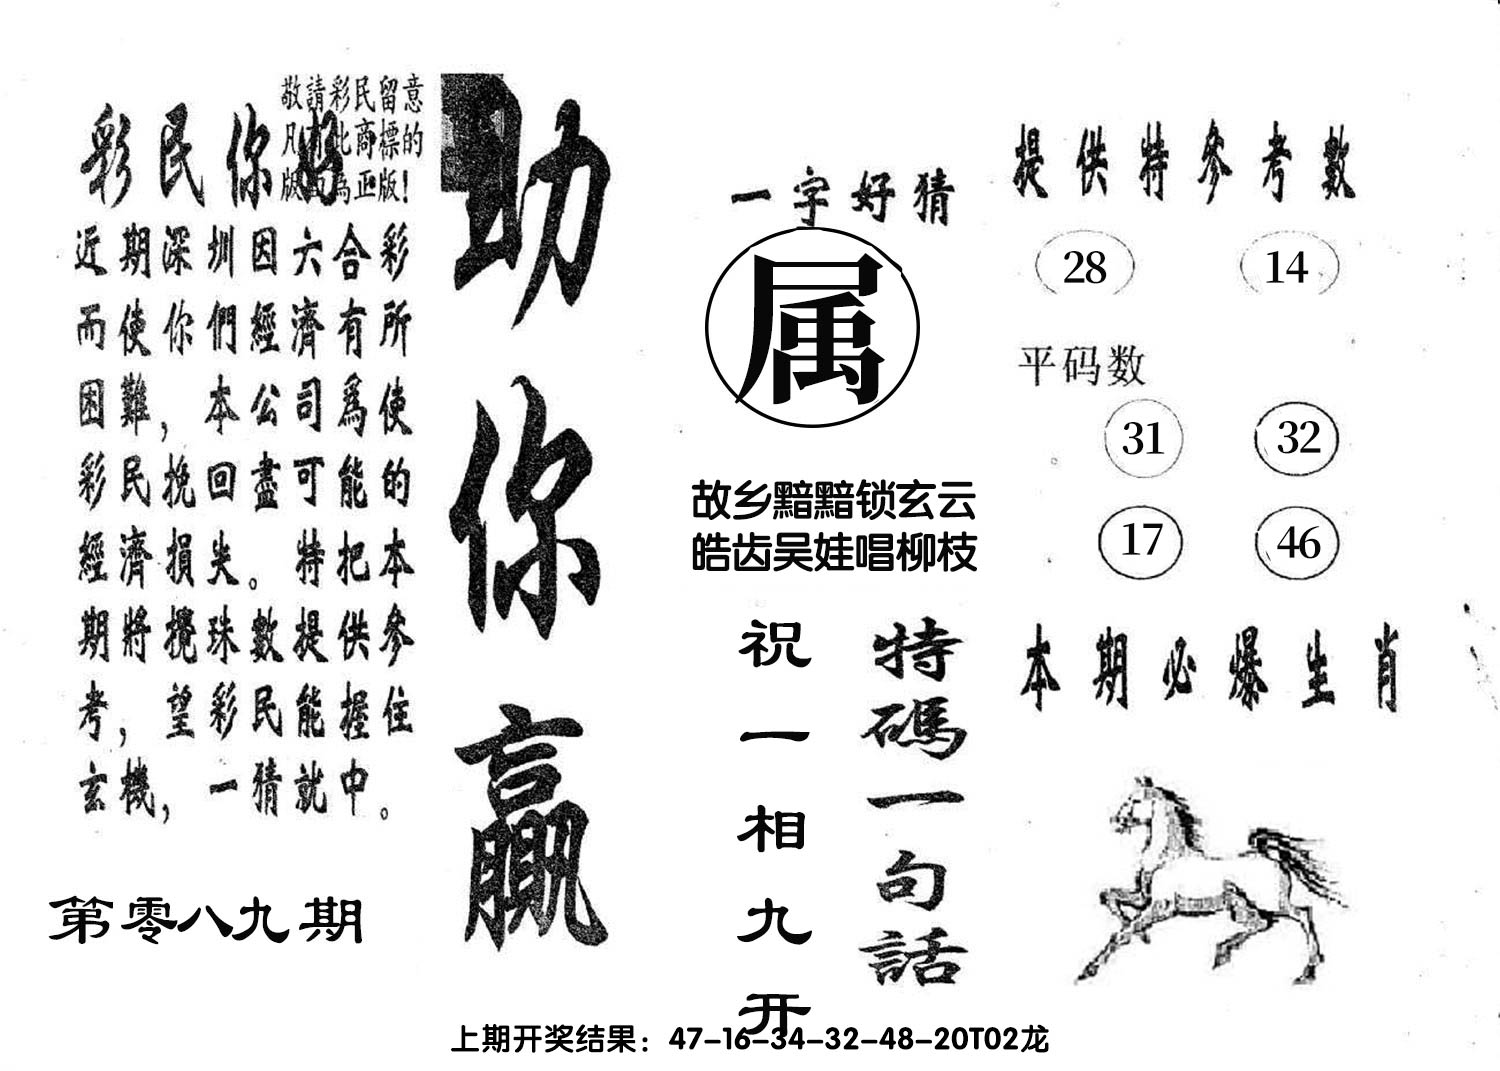 敬請彩民留意
凡有此商標的
版面為正版！
彩民你好
近期深圳因六合彩
而使你們經濟有所
困難，本公司爲使
彩民挽回盡可能的
經濟損失。特把本
期將攪珠數提供參
考，望彩民能握住
玄機，一猜就中。
第零八九期
助你赢
一字好猜
属
故乡黯黯锁玄云
皓齿吴娃唱柳枝
特碼一句話
祝一相九开
提供特參考數
28 14
平码数
31 32
17 46
本期必爆生肖
上期开奖结果：47-16-34-32-48-20T02龙